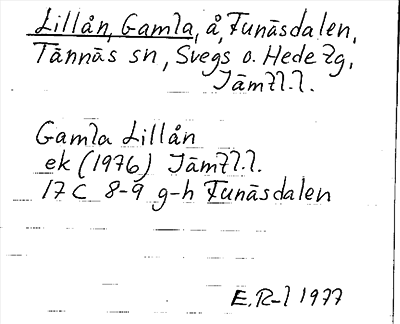 Lillån, Gamla, å, Funäsdalen,
Tännäs sn, Svegs o. Hede tg,
Jämtl.l.
Gamla Lillån
ek (1976) Jämtl.l.
17 C 8-9 g-h Funäsdalen
E.R-l 1977